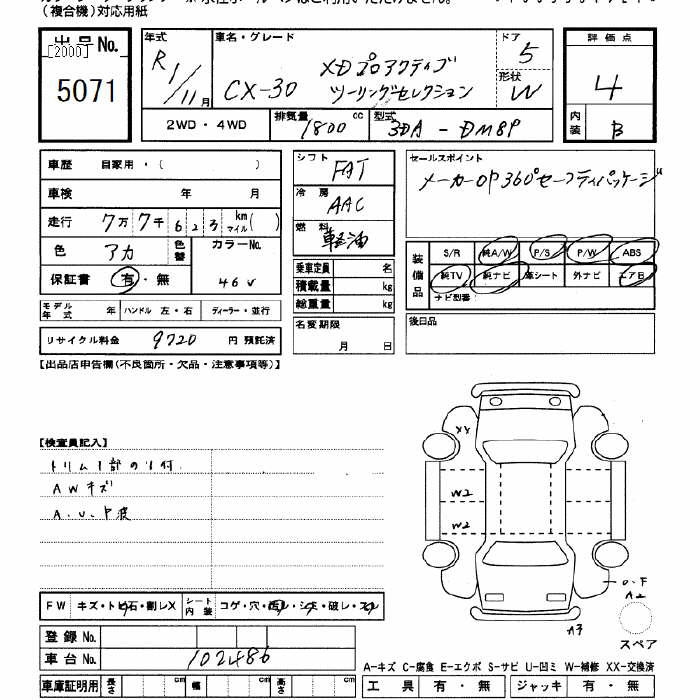 （複合機）対応用紙
出品No.
[2000]
5071
年式
R1/11月
車名・グレード
CX-30
XDプロアクティブ
ツーリングセレクション
ドア
5
形状
W
評価点
4
内装
B
2WD・4WD
排気量
1800
cc
型式
3DA-DM8P
車歴 自家用・（ ）
車検 年 月
走行 7万7千623 km マイル( )
色 アカ 色替
カラーNo.
46V
保証書 有・無
モデル年式 年 ハンドル 左・右 ディーラー・並行
リサイクル料金 9720 円 預託済
シフト FAT
冷房 AAC
燃料 軽油
乗車定員 名
積載量 kg
総重量 kg
名変期限
月 日
セールスポイント
メーカーOP360°セーフティパッケージ
装備品
S/R 純A/W P/S P/W ABS
純TV 純ナビ 革シート 外ナビ エアB
ナビ型番：
後日品
【出品店申告欄（不良箇所・欠品・注意事項等）】
【検査員記入】
トリム1部のり付
AWキズ
A.U.P波
FW キズ・トビ石・割レX シート内装 コゲ・穴・汚レ・シミ・破レ・スレ
登録No.
車台No. 102486
車庫証明用 長さ cm 幅 cm 高さ cm
XX
W2
W2
A2
A3
スペア
A－キズ C－腐食 E－エクボ S－サビ U－凹ミ W－補修 XX－交換済
工具 有・無 ジャッキ 有・無